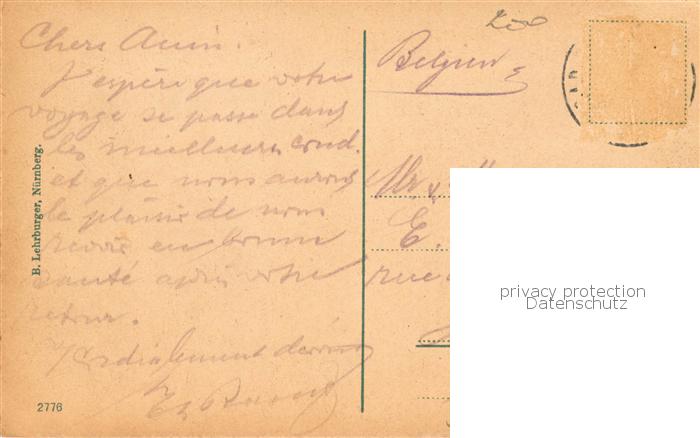 Chers Amis.
J'espère que votre
voyage se passe dans
les meilleures cond.
et que nous aurons
le plaisir de nous
revoir en bonne
santé après votre
retour.
Cordialement
Belgien
Mr
E.
rue
B. Lehrburger, Nürnberg.
2776
privacy protection
Datenschutz